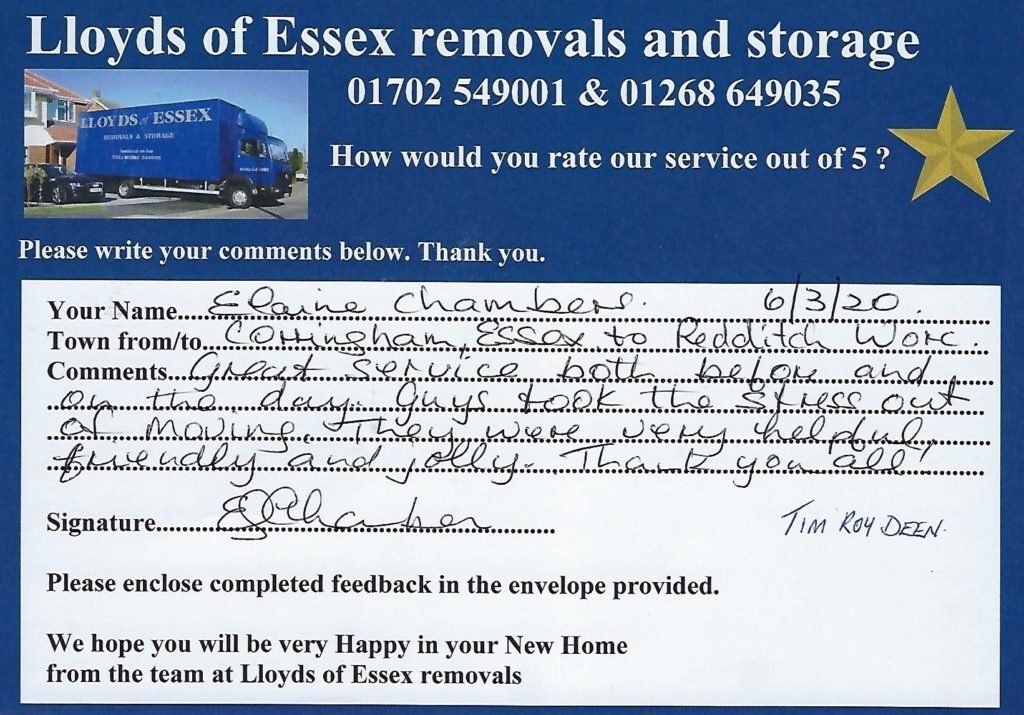 Lloyds of Essex removals and storage
01702 549001 & 01268 649035
LLOYDS of ESSEX
REMOVALS & STORAGE
How would you rate our service out of 5 ?
Please write your comments below. Thank you.
Your Name Elaine Chambers. 6/3/20.
Town from/to Corringham, Essex to Redditch Worc.
Comments Great service both before and
on the day. Guys took the stress out
of moving. They were very helpful,
friendly and jolly. Thank you all!
Signature EJChambers
TIM ROY DEEN.
Please enclose completed feedback in the envelope provided.
We hope you will be very Happy in your New Home
from the team at Lloyds of Essex removals